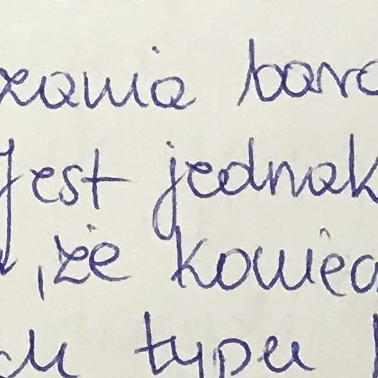 zania bard
Jest jednak
, że koniec
ch typu